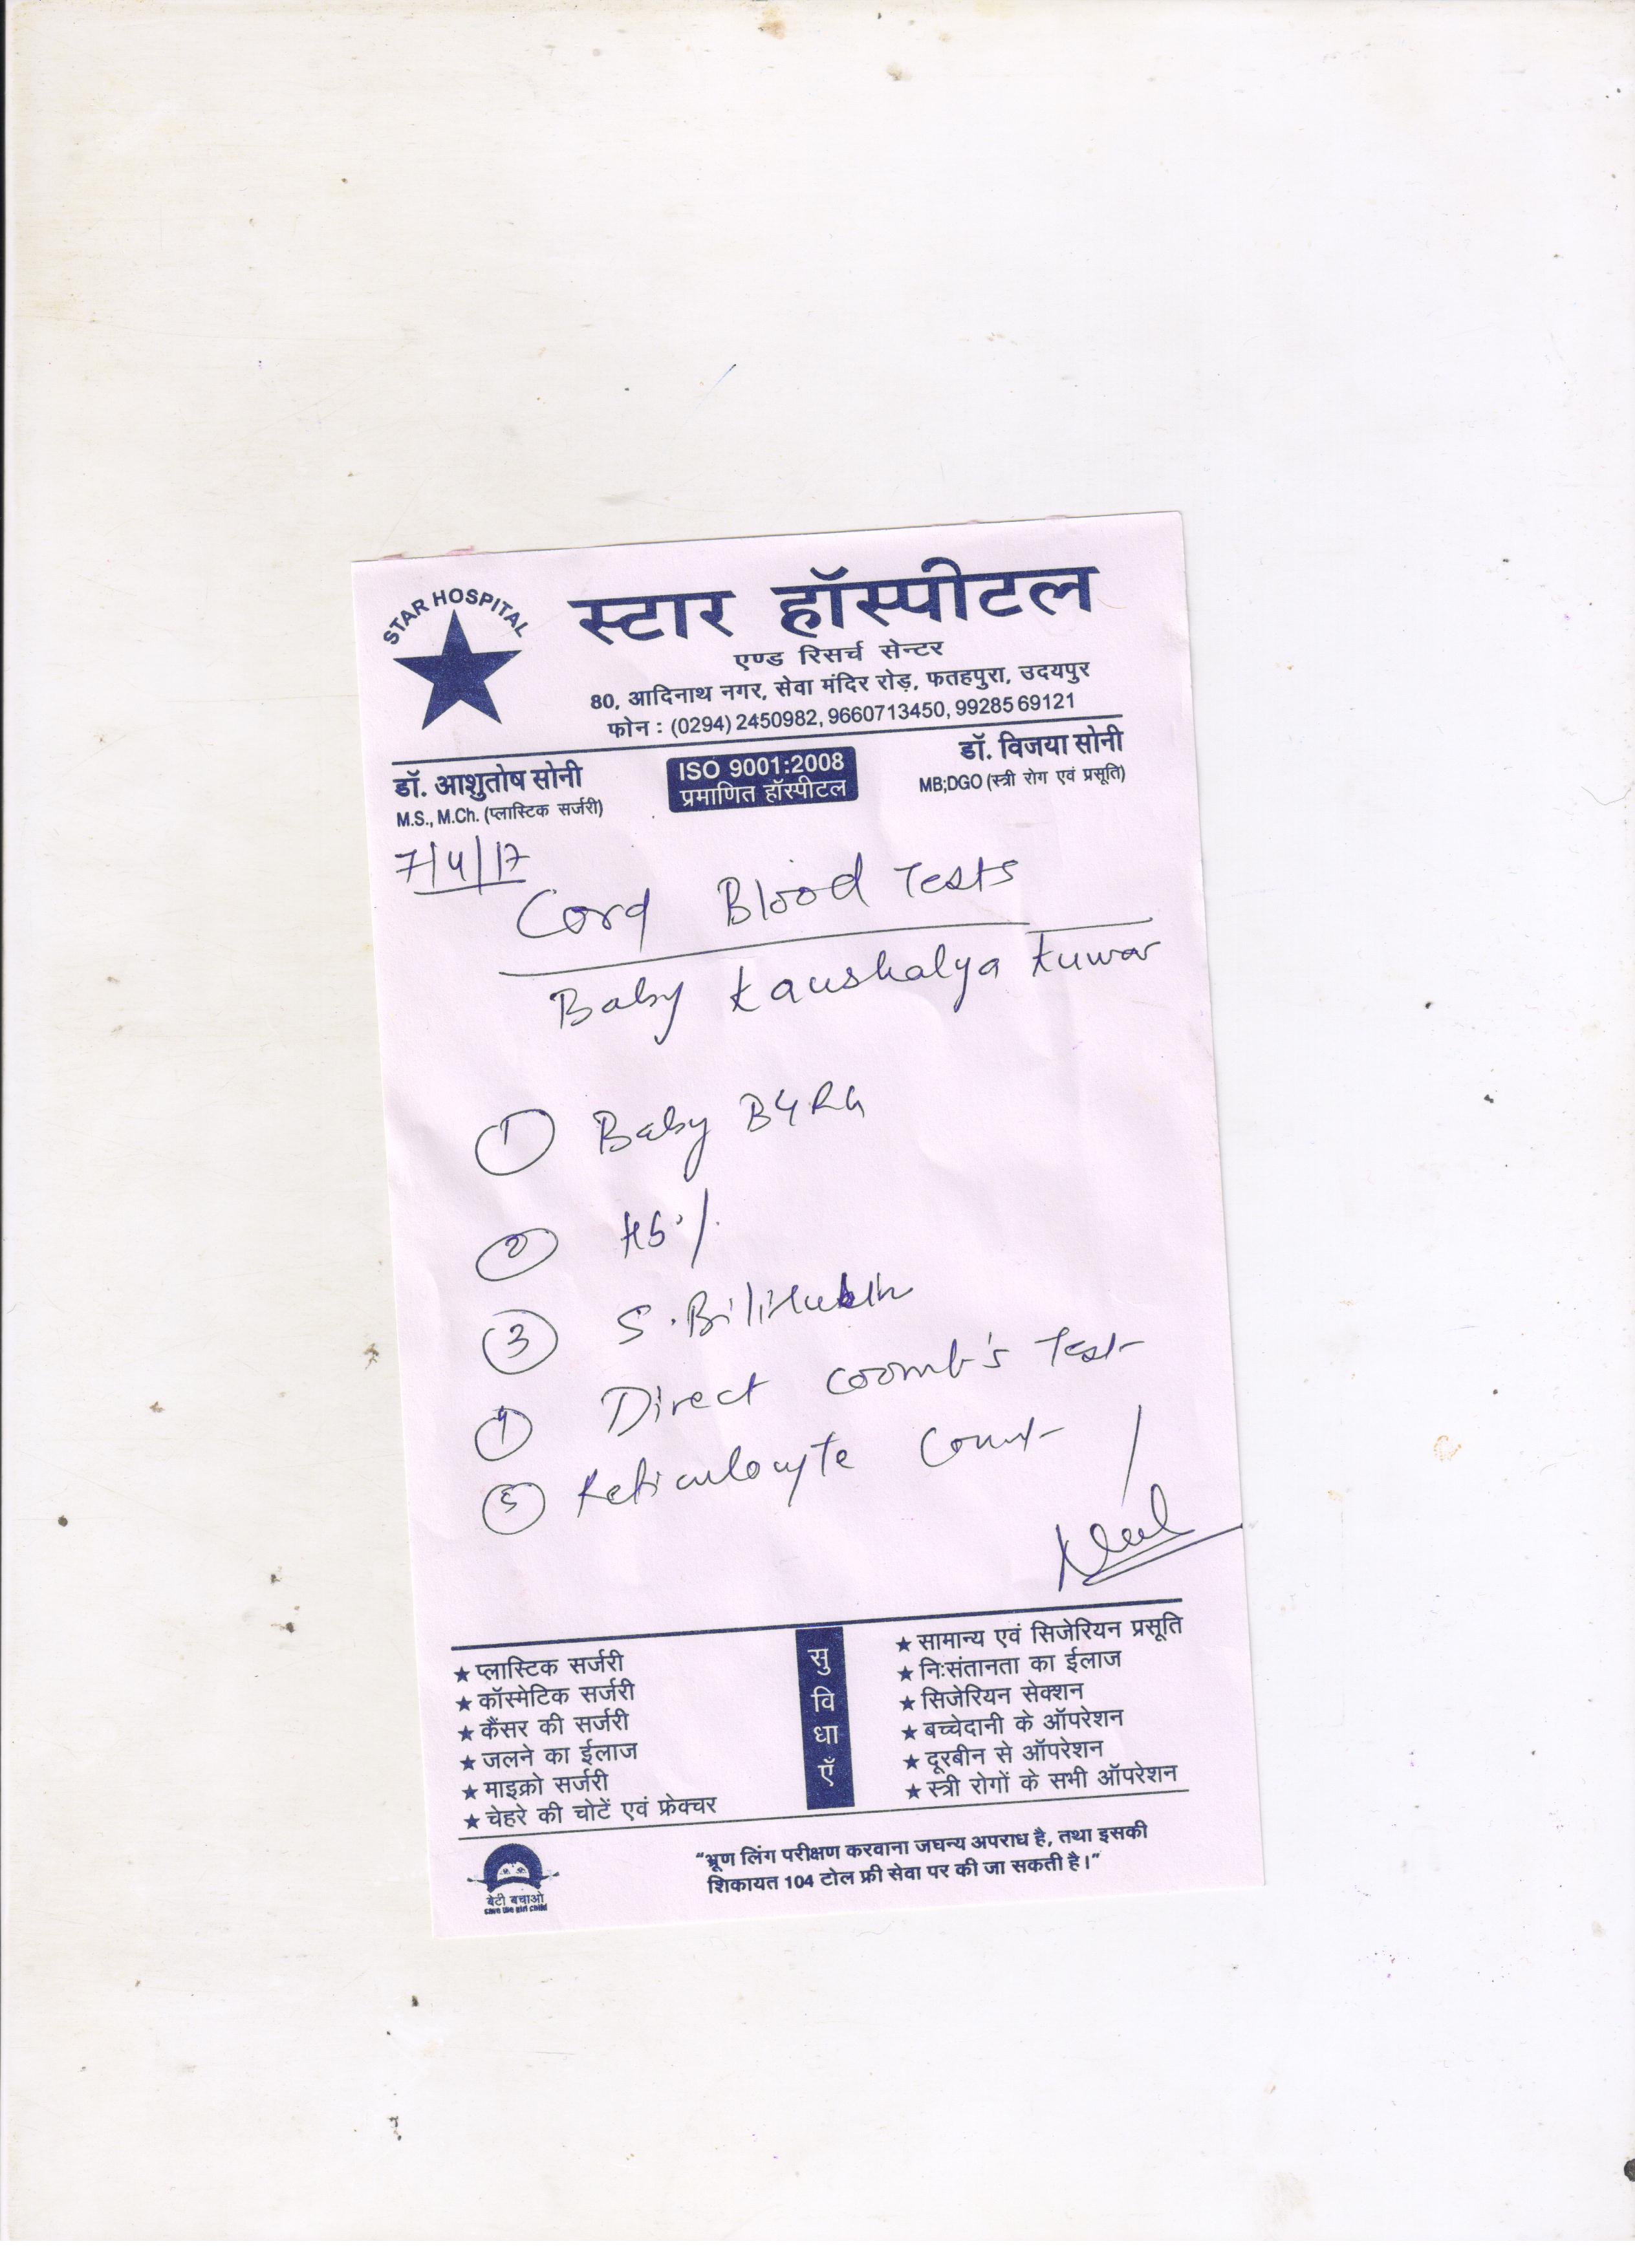 STAR HOSPITAL
स्टार हॉस्पीटल
एण्ड रिसर्च सेन्टर
80, आदिनाथ नगर, सेवा मंदिर रोड़, फतहपुरा, उदयपुर
फोन : (0294) 2450982, 9660713450, 9928569121
डॉ. आशुतोष सोनी
M.S., M.Ch. (प्लास्टिक सर्जरी)
ISO 9001:2008
प्रमाणित हॉस्पीटल
डॉ. विजया सोनी
MB;DGO (स्त्री रोग एवं प्रसूति)
7/4/17
Cord Blood Tests
Baby Kaushalya Kuwar
① Baby BGRh
② Hb%
③ S. Bilirubin
④ Direct Coomb's Test
⑤ Reticulocyte Count
★ प्लास्टिक सर्जरी
★ कॉस्मेटिक सर्जरी
★ कैंसर की सर्जरी
★ जलने का ईलाज
★ माइक्रो सर्जरी
★ चेहरे की चोटें एवं फ्रेक्चर
सुविधाएँ
★ सामान्य एवं सिजेरियन प्रसूति
★ निःसंतानता का ईलाज
★ सिजेरियन सेक्शन
★ बच्चेदानी के ऑपरेशन
★ दूरबीन से ऑपरेशन
★ स्त्री रोगों के सभी ऑपरेशन
बेटी बचाओ
save the girl child
"भ्रूण लिंग परीक्षण करवाना जघन्य अपराध है, तथा इसकी
शिकायत 104 टोल फ्री सेवा पर की जा सकती है।"